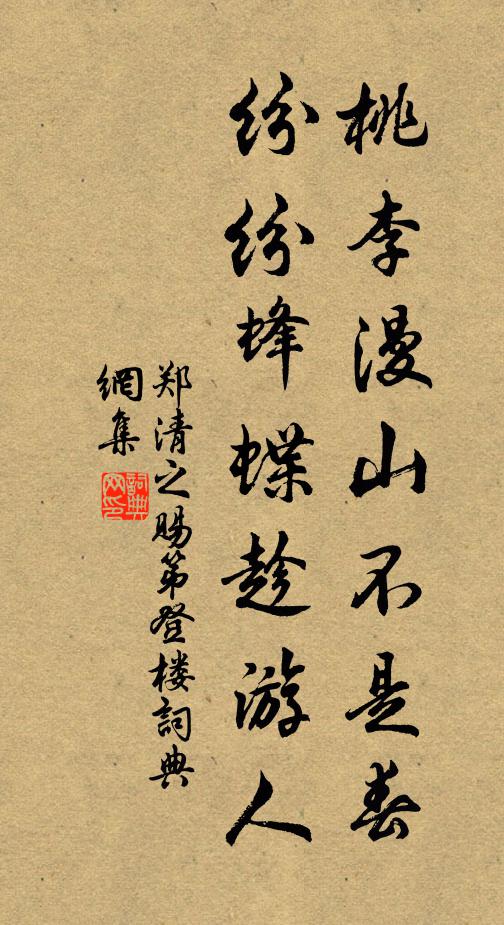 桃李漫山不是春
纷纷蜂蝶趁游人
郑清之赐第登楼詞典
網集
詞典網印